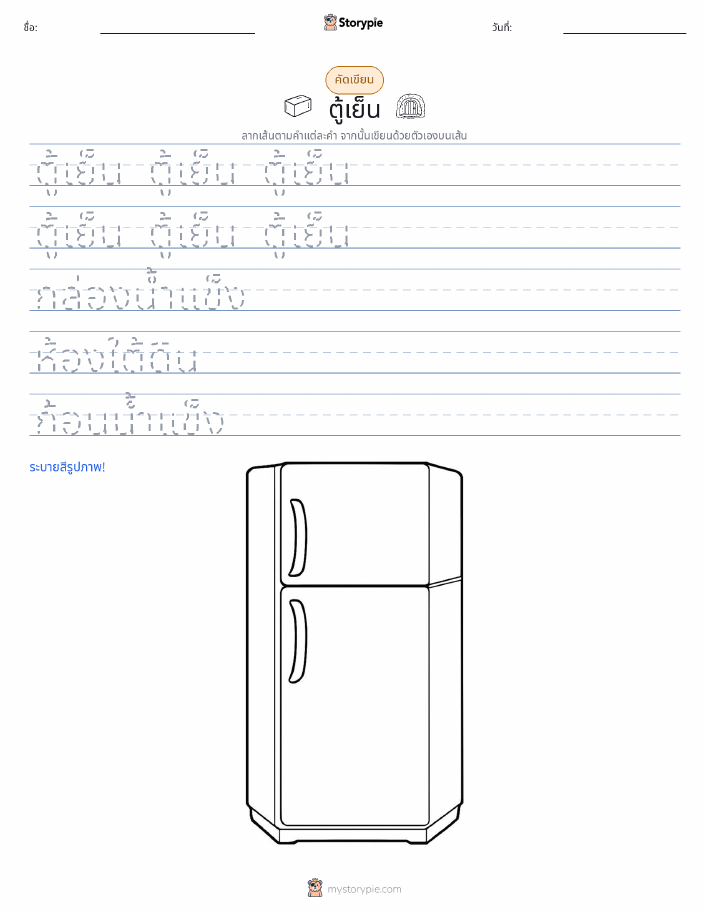 ชื่อ:
Storypie
วันที่:
คัดเขียน
ตู้เย็น
ลากเส้นตามคำแต่ละคำ จากนั้นเขียนด้วยตัวเองบนเส้น
ตู้เย็น ตู้เย็น ตู้เย็น
ตู้เย็น ตู้เย็น ตู้เย็น
กล่องน้ำแข็ง
ห้องใต้ดิน
ก้อนน้ำแข็ง
ระบายสีรูปภาพ!
mystorypie.com